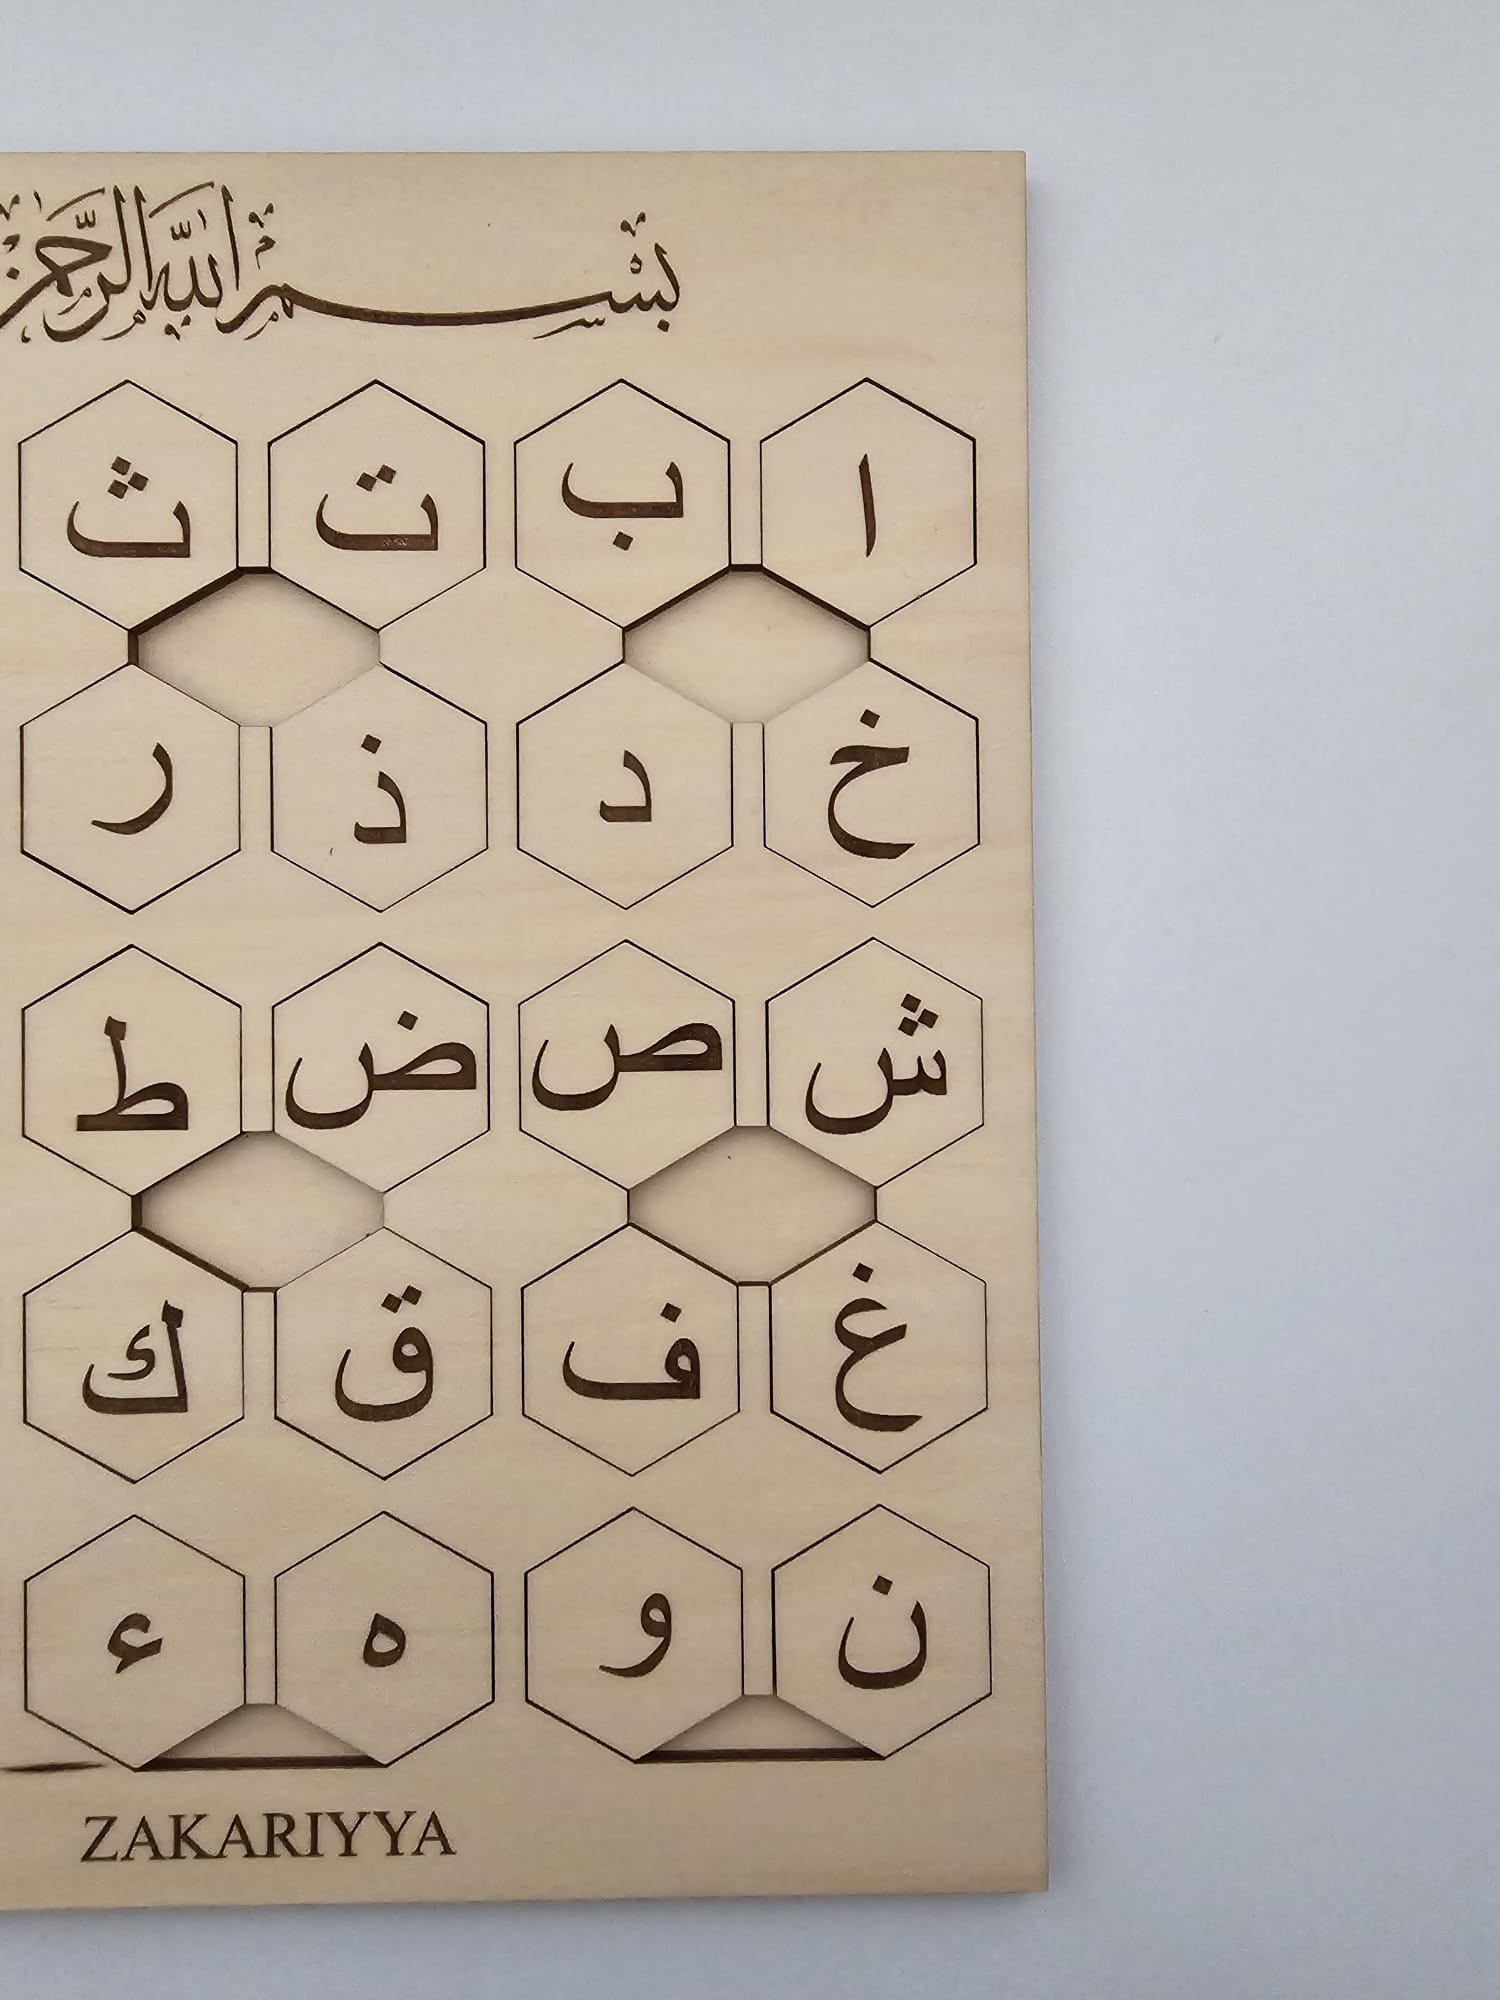 بِسْمِ اللّٰهِ الرَّحْمٰنِ
ا ب ت ث
خ د ذ ر
ش ص ض ط
غ ف ق ك
ن و ه ء
ZAKARIYYA